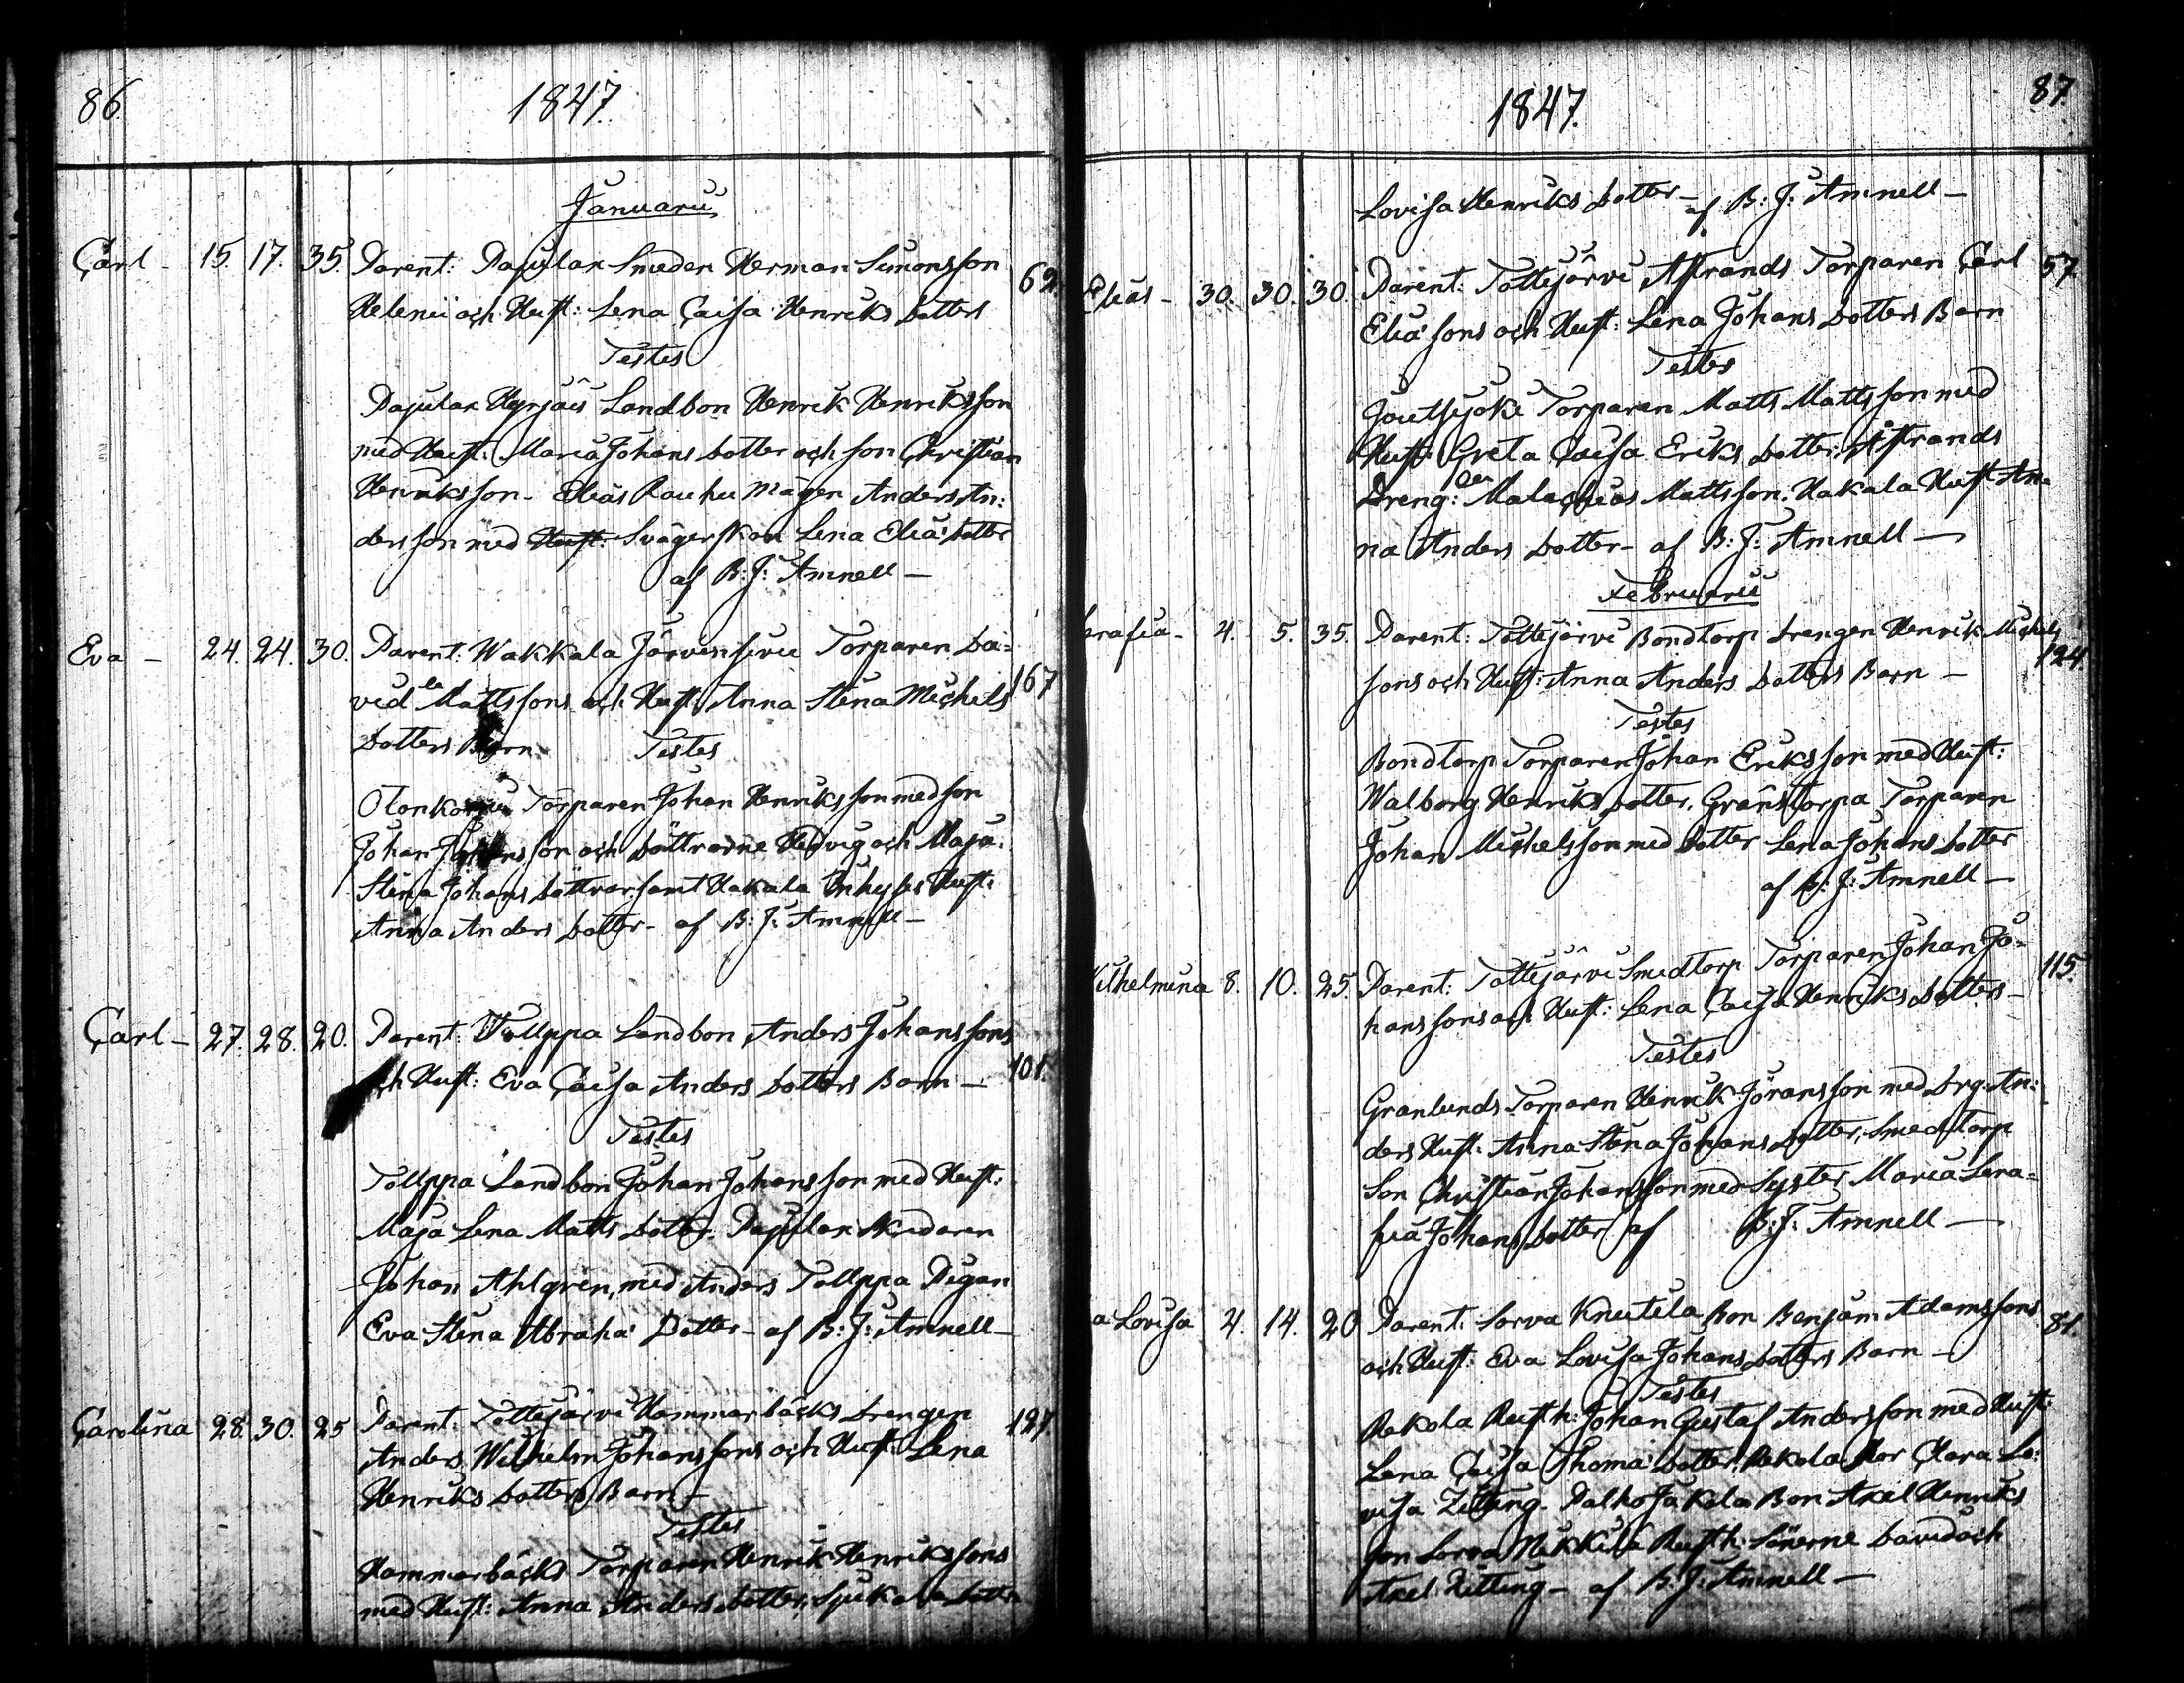 86.
1847.
Januarii
Carl - 15. 17. 35. Parent: Pajulax Smeden Herman Simonsson 62.
Helenii och Hust: Lena Caisa Henriks dotters
Testes
Pajulax Hyrjäis Landbon Henrik Henriksson
med Hust: Maria Johans dotter och son Christian
Henriksson. Elias Rauhu mågen Anders An:
dersson med Hust: Svägerskan Lena Elia dotter
af B: J: Amnell -
Eva - 24. 24. 30. Parent: Wakkala Järvensivu Torparen Da= 167
vid Mattssons och Hust: Anna Stina Michels
dotters Barn. Testes
Torparen Johan Henriksson med son
Johan Johansson och döttrarne Hedvig och Maja
Stina Johans döttrar samt Hakala Inhyses Hust:
Anna Anders dotter - af B: J: Amnell -
Carl - 27. 28. 20. Parent: Tollppa Landbon Anders Johanssons 101.
och Hust: Eva Caisa Anders dotters Barn -
Testes
Tollppa Landbon Johan Johansson med Hust:
Maja Lena Matts dotter. Pajulax
Johan Ahlgren, med Anders Tollppa Pigan
Eva Stina Abraha Dotter - af B: J: Amnell -
Carolina 28. 30. 25 Parent: Tottijärvi Hammarbäcks drengen 127.
Anders Wilhelm Johanssons och Hust: Lena
Henriks dotters Barn -
Testes
Hammarbäcks Torparen Henrik Henrikssons
med Hust: Anna Anders dotter, dotter
1847.
87.
Lovisa Henriks dotter - af B: J: Amnell -
Elias - 30. 30. 30. Parent: Tottijärvi Åstrands Torparen Carl 57.
Elia sons och Hust: Lena Johans dotters Barn
Testes
Joutsijoki Torparen Matts Mattsson med
Hust: Greta Caisa Eriks dotter, Åstrands
Dreng: Malachias Mattsson. Hakala Hust An=
na Anders dotter - af B: J: Amnell -
Februarii
erafia - 4. 5. 35. Parent: Tottijärvi Bondtorp drengen Henrik Michels 124
sons och Hust: Anna Anders dotters Barn -
Testes
Bondtorp Torparen Johan Eriksson med Hust:
Walborg Henriks dotter, Gränstorpa Torparen
Johan Michelsson med dotter Lena Johans dotter
af B: J: Amnell -
Wilhelmina 8. 10. 25. Parent: Tottijärvi Smedtorp Torparen Johan Jo= 115.
hanssons och Hust: Lena Caisa Henriks dotters -
Testes
Granlunds Torparen Henrik Jöransson med drg: An:
ders Hust: Anna Stina Johans dotter, Smedtorp
Son Christian Johansson med Syster Maria Sera=
fia Johans dotter af B: J: Amnell -
a Lovisa 4. 14. 20 Parent: Sorva Knutila Bon Benjam: Adamssons 81.
och Hust: Eva Lovisa Johans dotters Barn -
Testes
Rekola Rusth: Johan Gustaf Andersson med Hust:
Lena Caisa Thoma dotter, Rekola Mor Clara Lo:
visa Zitting. Palho Jakola Bon Axel Henriks
son Sorva Nikkilä Rusth: Sönerne David och
Axel Zitting - af B: J: Amnell -